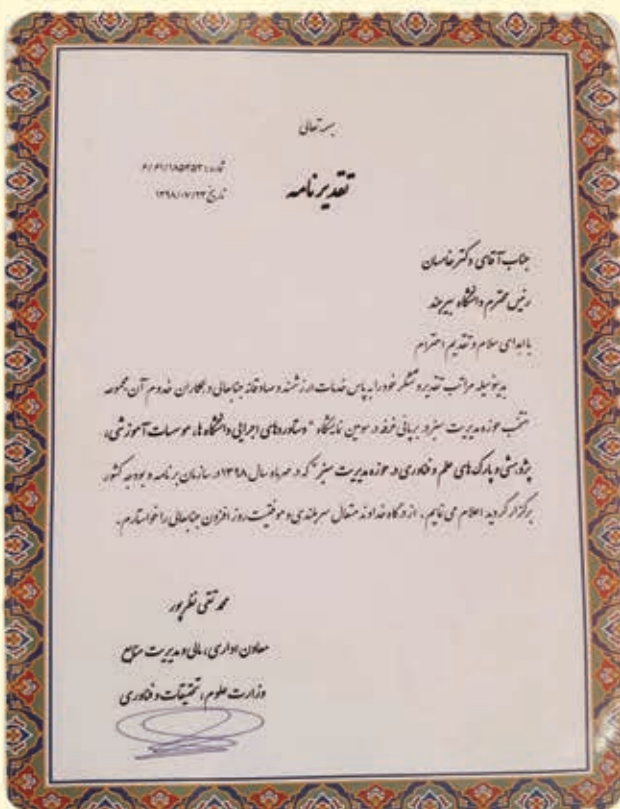 بسمه تعالی
شماره: ۶/۶۱/۱۸۵۳۵۳
تاریخ ۱۳۹۸/۰۷/۲۳
تقدیرنامه
جناب آقای دکتر خامسان
رئیس محترم دانشگاه بیرجند
با اهدای سلام و تقدیم احترام
بدینوسیله مراتب تقدیر و تشکر خود را به پاس خدمات ارزشمند و صادقانه جنابعالی و همکاران خدوم آن مجموعه
منتخب حوزه مدیریت سبز و برپایی غرفه در سومین نمایشگاه "دستاوردهای اجرایی دانشگاه ها، موسسات آموزشی،
پژوهشی و پارک های علم و فناوری در حوزه مدیریت سبز" که در مهرماه سال ۱۳۹۸ در سازمان برنامه و بودجه کشور
برگزار گردید اعلام می نمایم. از درگاه خداوند متعال سربلندی و موفقیت روز افزون جنابعالی را خواستارم.
محمد تقی نظرپور
معاون اداری، مالی و مدیریت منابع
وزارت علوم، تحقیقات و فناوری